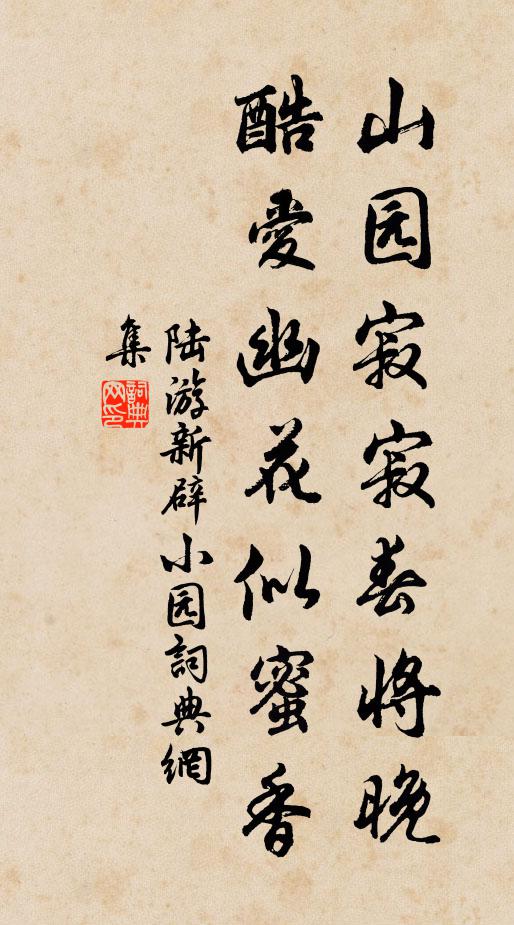 山园寂寂春将晚
酷愛幽花似蜜香
陆游新辟小园詞典網
集
詞典
网印